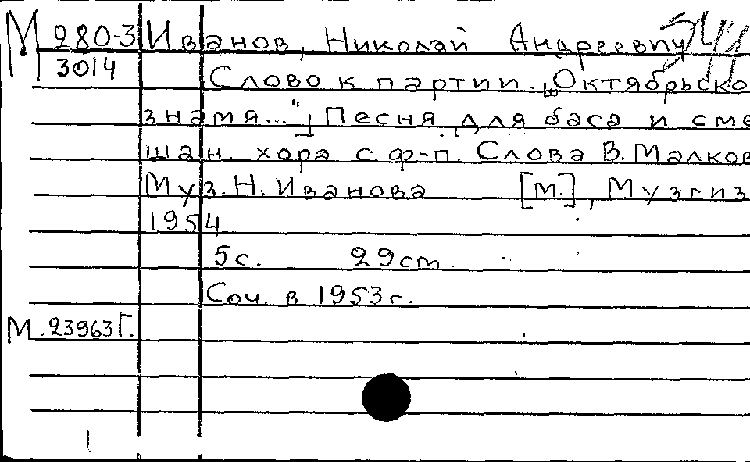 М 280-3 Иванов, Николай Андреевич
3014 Слово к партии. „Октябрьско
знамя..."] Песня для баса и сме
шан. хора с ф-п. Слова В. Малков
Муз. Н. Иванова [М.], Музгиз
1954
5с. 29см
Соч. в 1953г.
М. 23963Г.